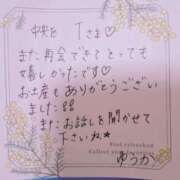 中央区 Tさま♡
また再会できてとっても
嬉しかったです♡
お土産もありがとうござい
ました!!
またお話しを聞かせて
下さいね★
ゆうか